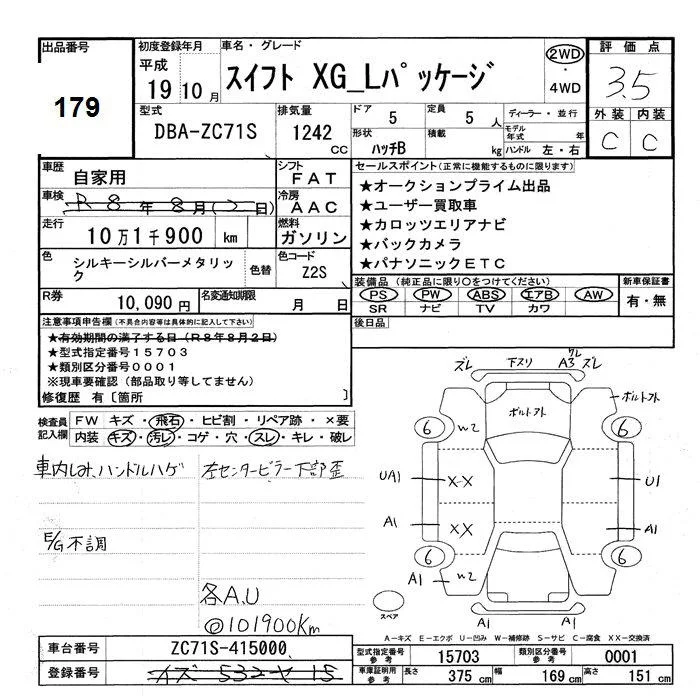 出品番号
179
初度登録年月
平成
19 10月
車名・グレード
スイフト XG_Lパッケージ
2WD
・
4WD
評価点
3.5
型式
DBA-ZC71S
排気量
1242
CC
ドア 5
定員 5 人
形状
ハッチB
積載
kg
ディーラー・並行
モデル年式 年
ハンドル 左・右
外装 内装
C C
車歴
自家用
シフト
FAT
車検
R8年8月(2日)
冷房
AAC
走行
10万1千900 km
燃料
ガソリン
色
シルキーシルバーメタリック
色替
色コード
Z2S
R券
10,090 円
名変通知期限
月 日
セールスポイント(正常に機能するものに限ります)
★オークションプライム出品
★ユーザー買取車
★カロッツエリアナビ
★バックカメラ
★パナソニックETC
装備品(純正品に限り○をつけてください)
PS PW ABS エアB AW
SR ナビ TV カワ
新車保証書
有・無
後日品
注意事項申告欄(不具合内容等は具体的に記入して下さい)
★有効期間の満了する日(R8年8月2日)
★型式指定番号15703
★類別区分番号0001
※現車要確認(部品取り等してません)
修復歴 有〔箇所 〕
検査員記入欄
FW キズ・飛石・ヒビ割・リペア跡・×要
内装 キズ・汚レ・コゲ・穴・スレ・キレ・破レ
車内しみ、ハンドルハゲ
左センターピラー下部歪
E/G不調
各A,U
@101900Km
ズレ 下スリ クレ A3 ズレ
ボルトヌケ
ボルトヌケ
6 W2 6
UA1 XX U1
A1 XX A1
6 W2 6
A1
A1 A1
スペア
A-キズ E-エクボ U-凹み W-補修跡 S-サビ C-腐食 XX-交換済
車台番号
ZC71S-415000
登録番号
型式指定番号
参考
15703
類別区分番号
参考
0001
車庫証明用
参考
長さ 375 cm
幅 169 cm
高さ 151 cm